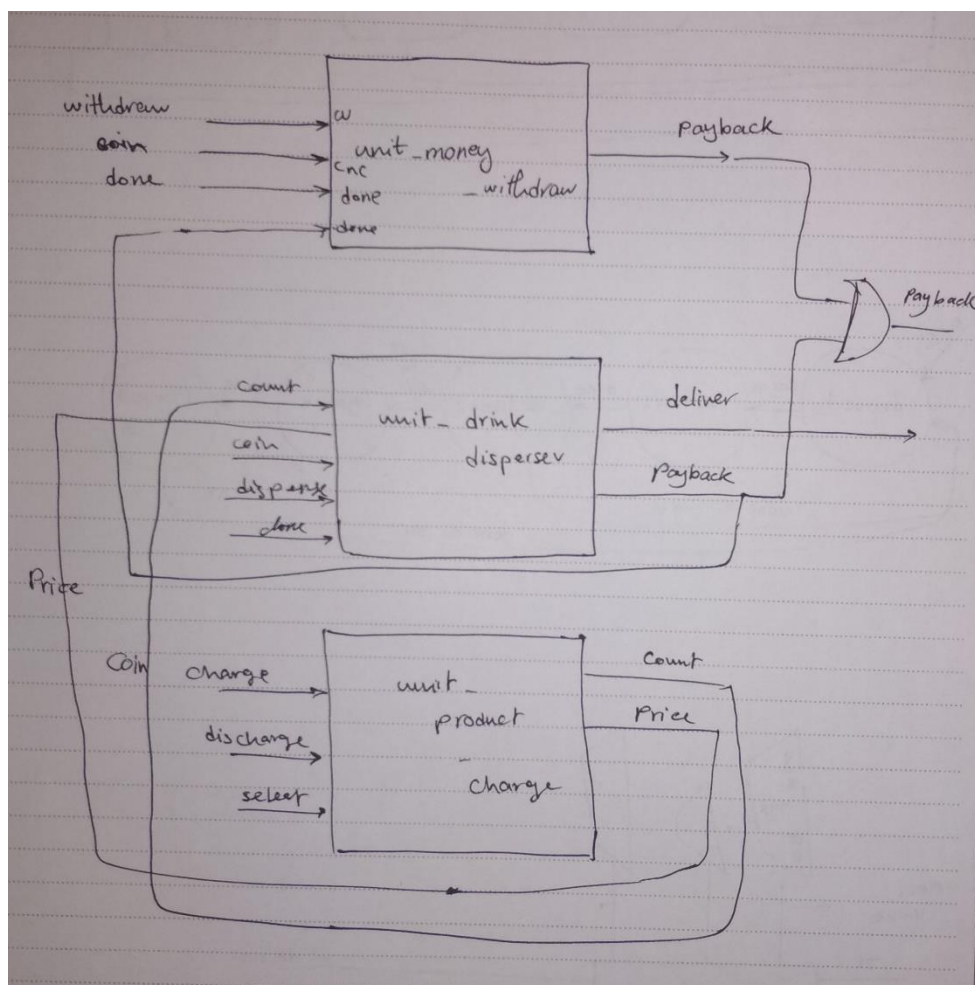 withdraw
coin
done
w
cnc
done
done
unit_money
_withdraw
Payback
Payback
count
coin
dispense
done
unit_drink
disperser
deliver
Payback
Price
Coin
charge
discharge
select
unit_
product
_
charge
Count
Price